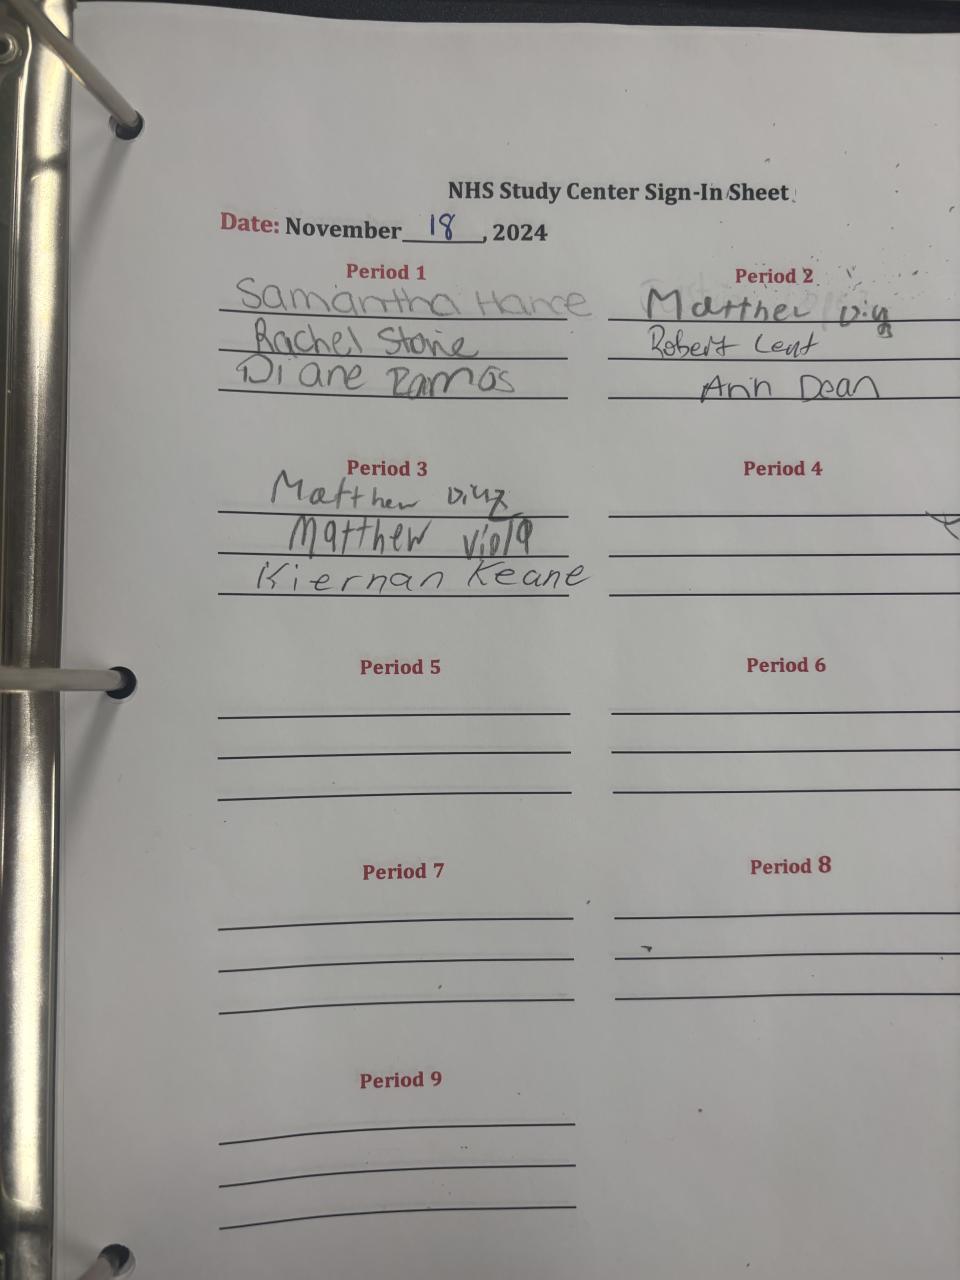 NHS Study Center Sign-In Sheet
Date: November 18, 2024
Period 1
Samantha Hance
Rachel Stone
Diane Ramos
Period 2
Matthew
Robert Lent
Ann Dean
Period 3
Matthew
Matthew Viola
Kiernan Keane
Period 4
Period 5
Period 6
Period 7
Period 8
Period 9